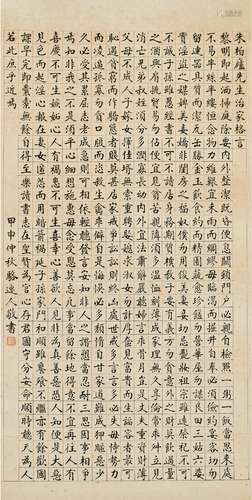 朱柏廬先生治家格言
黎明即起灑掃庭除要內外整潔既昏便息關鎖門戶必親自檢點一粥一飯當思來處
不易半絲半縷恒念物力維艱宜未雨而綢繆毋臨渴而掘井自奉必須儉約宴客切勿
留連器具質而潔瓦缶勝金玉飲食約而精園蔬愈珍饈勿營華屋勿謀良田三姑六婆
實淫盜之媒婢美妾嬌非閨房之福奴僕勿用俊美妻妾切忌艷妝祖宗雖遠祭祀不可
不誠子孫雖愚經書不可不讀居身務期質樸教子要有義方勿貪意外之財莫飲過量
之酒與肩挑貿易勿佔便宜見貧苦親鄰須加溫恤刻薄成家理無久享倫常乖舛立見
消亡兄弟叔姪須分多潤寡長幼內外宜法肅辭嚴聽婦言乖骨肉豈是丈夫重資財薄
父母不成人子嫁女擇佳婿毋索重聘娶媳求淑女勿計厚奩見富貴而生諂容者最可
恥遇貧窮而作驕態者賤莫甚居家戒爭訟訟則終凶處世戒多言言多必失毋恃勢力
而凌逼孤寡勿貪口腹而恣殺生禽乖僻自是悔誤必多頹惰自甘家道難成狎暱惡少
久必受其累屈志老成急則可相依輕聽發言安知非人之譖愬當忍耐三思因事相爭
焉知非我之不是須平心細想施惠毋念受恩莫忘凡事當留餘地得意不宜再往人有
喜慶不可生妒嫉心人有禍患不可生喜幸心善欲人見不是真善惡恐人知便是大惡
見色而起淫心報在妻女匿怨而用暗箭禍延子孫家門和順雖饔飧不繼亦有餘歡國
課早完即囊橐無餘自得至樂讀書志在聖賢為官心存君國守分安命順時聽天為人
若此庶乎近焉
甲申仲秋 人敬書